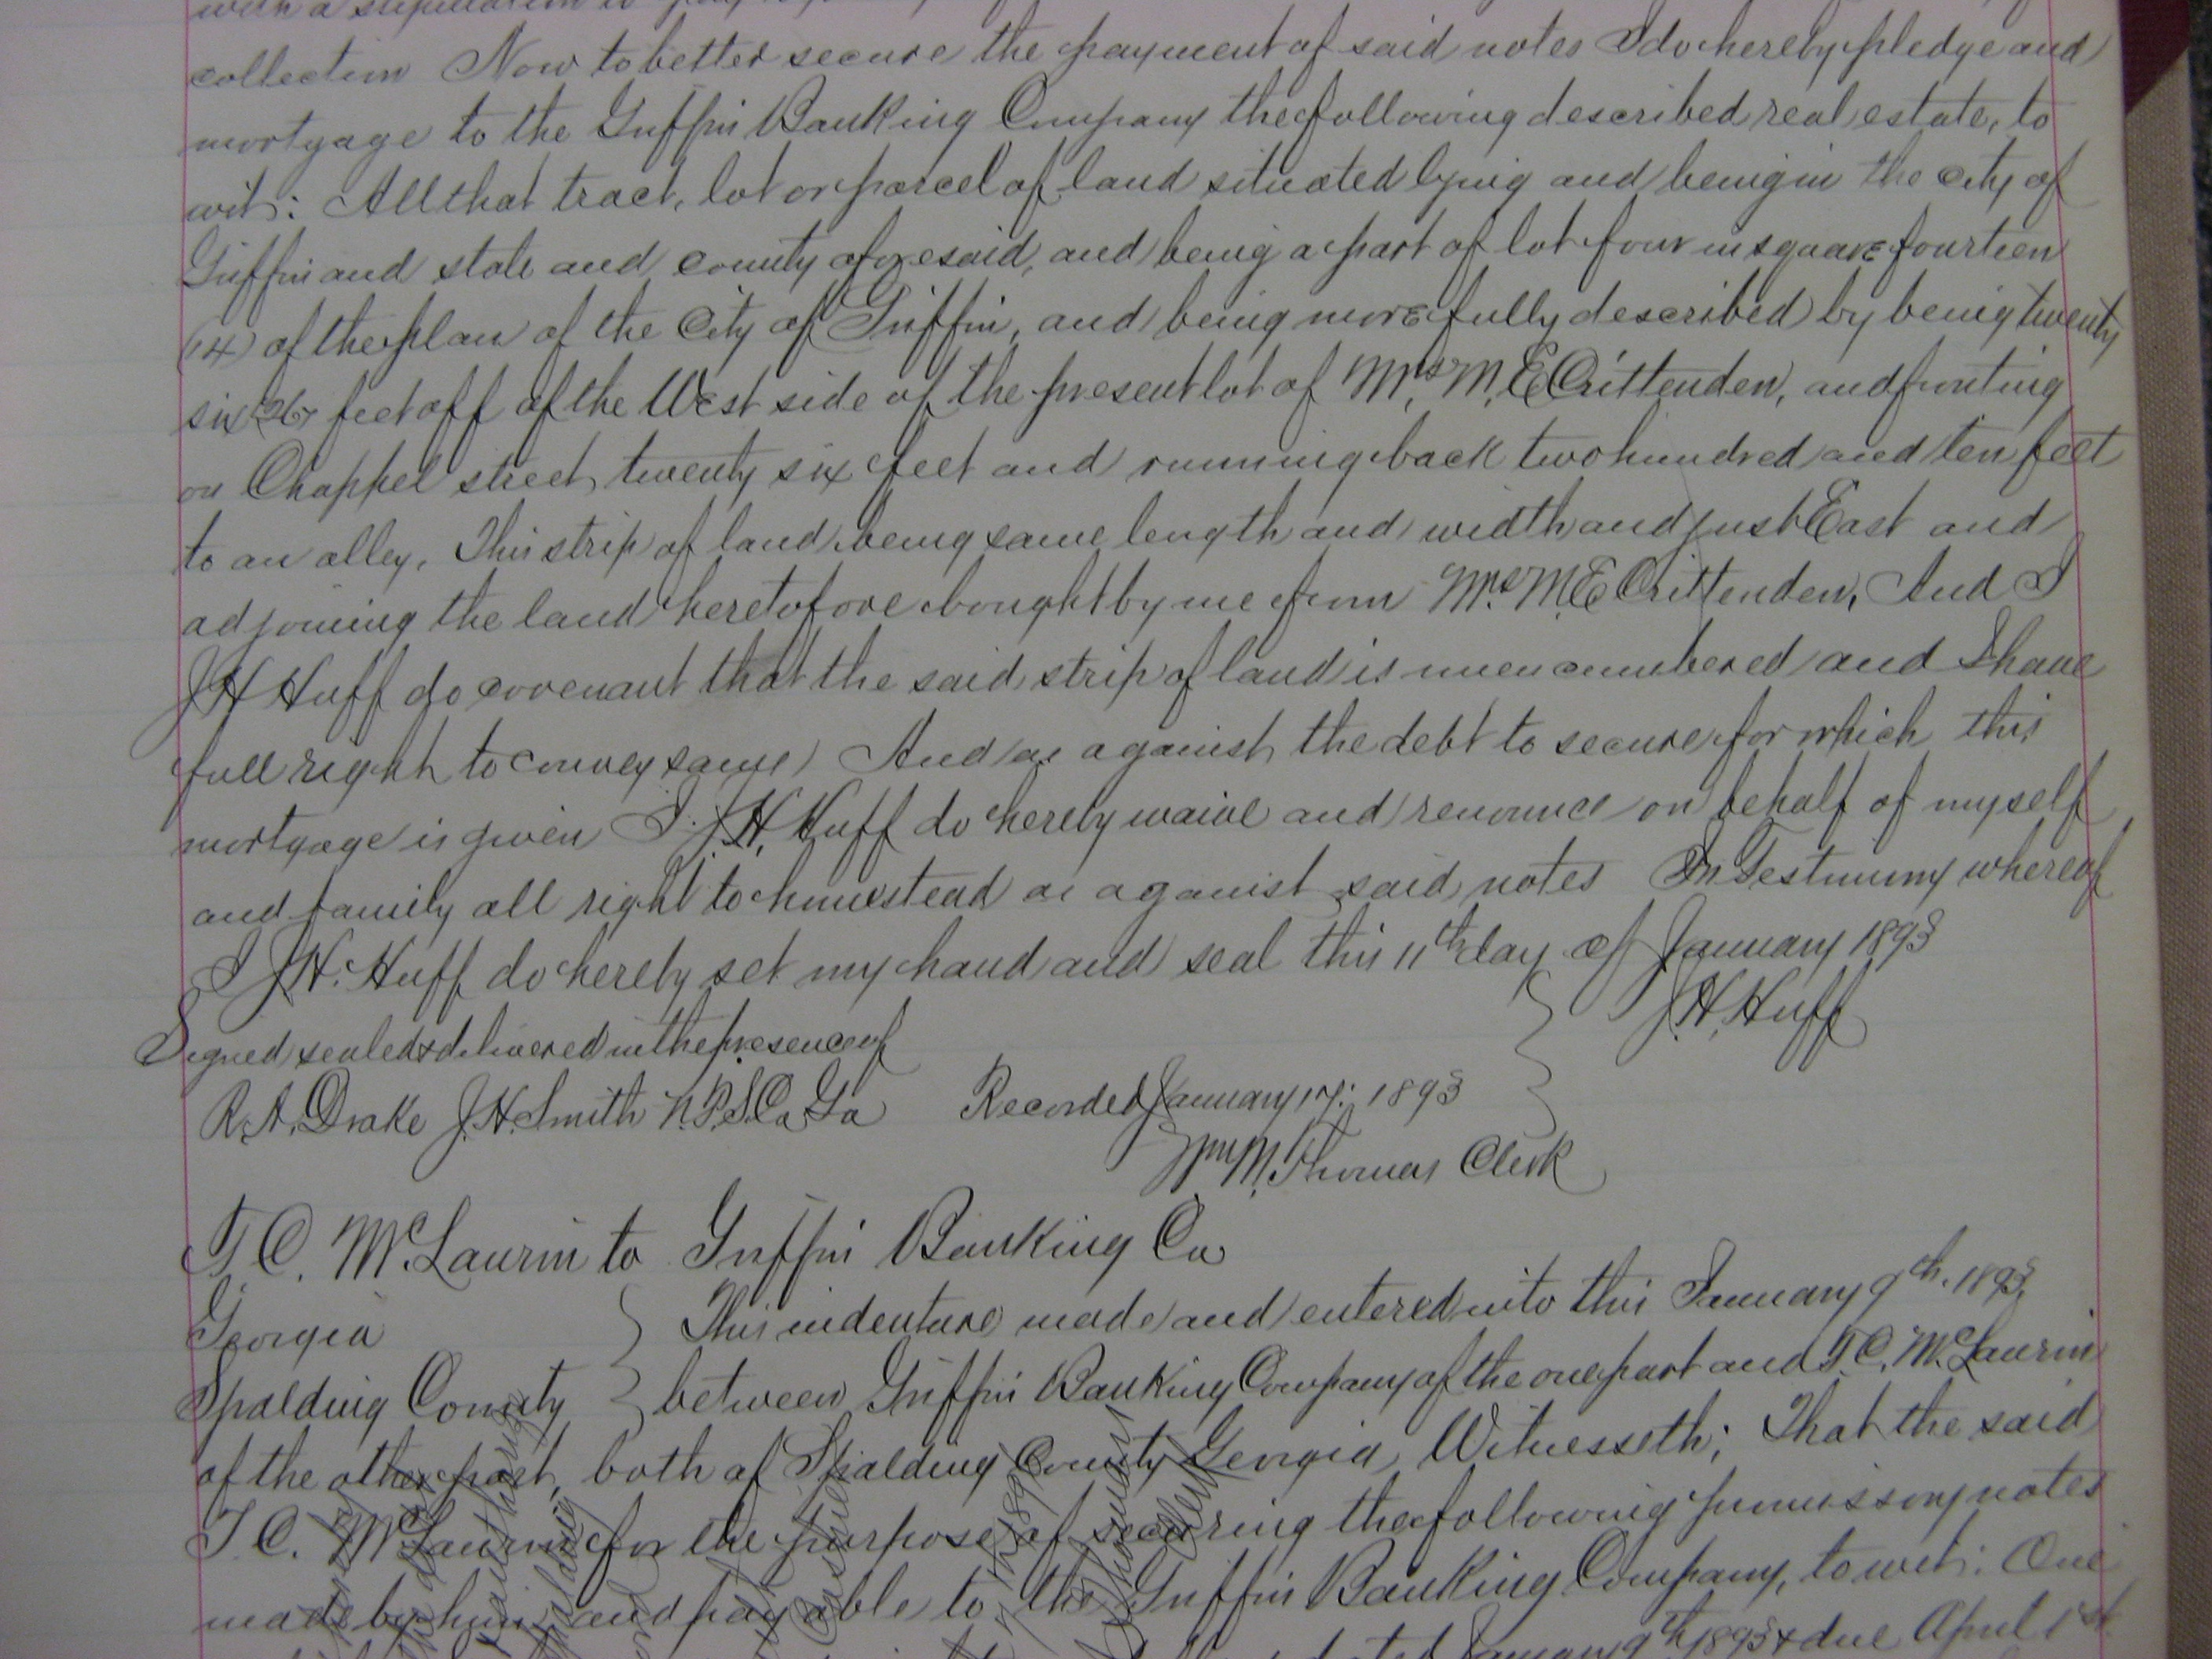 with a stipulation to pay
collection Now to better secure the payment of said notes I do hereby pledge and
mortgage to the Griffin Banking Company the following described real estate, to
wit: All that tract, lot or parcel of land situated lying and being in the city of
Griffin and state and county aforesaid, and being a part of lot four in square fourteen
(14) of the plan of the City of Griffin, and being more fully described by being twenty
six (26) feet off of the West side of the present lot of Mrs. M. E. Crittenden, and fronting
on Chappel street twenty six feet and running back two hundred and ten feet
to an alley, This strip of land being same length and width and just East and
adjoining the land heretofore bought by me from Mrs. M. E Crittenden, And I
J H Huff do covenant that the said strip of land is unencumbered and I have
full right to convey same And as against the debt to secure for which this
mortgage is given I. J. H. Huff do hereby waive and renounce on behalf of myself
and family all right to homestead as against said notes In Testimony whereof
I J. H. Huff do hereby set my hand and seal this 11th day of January 1893
Signed sealed & delivered in the presence of J. H. Huff
R. A. Drake J. H. Smith N. P. S. Co. Ga Recorded January 17. 1893
Wm M. Thomas Clerk
T. C. McLaurin to Griffin Banking Co
Georgia This indenture made and entered into this January 9th. 1893
Spalding County between Griffin Banking Company of the one part and T. C. McLaurin
of the other part, both of Spalding County Georgia, Witnesseth; That the said
T. C. McLaurin for the purpose of securing the following promissory notes
made by him and payable to the Griffin Banking Company, to wit: One
dated January 9th 1893 & due April 1st